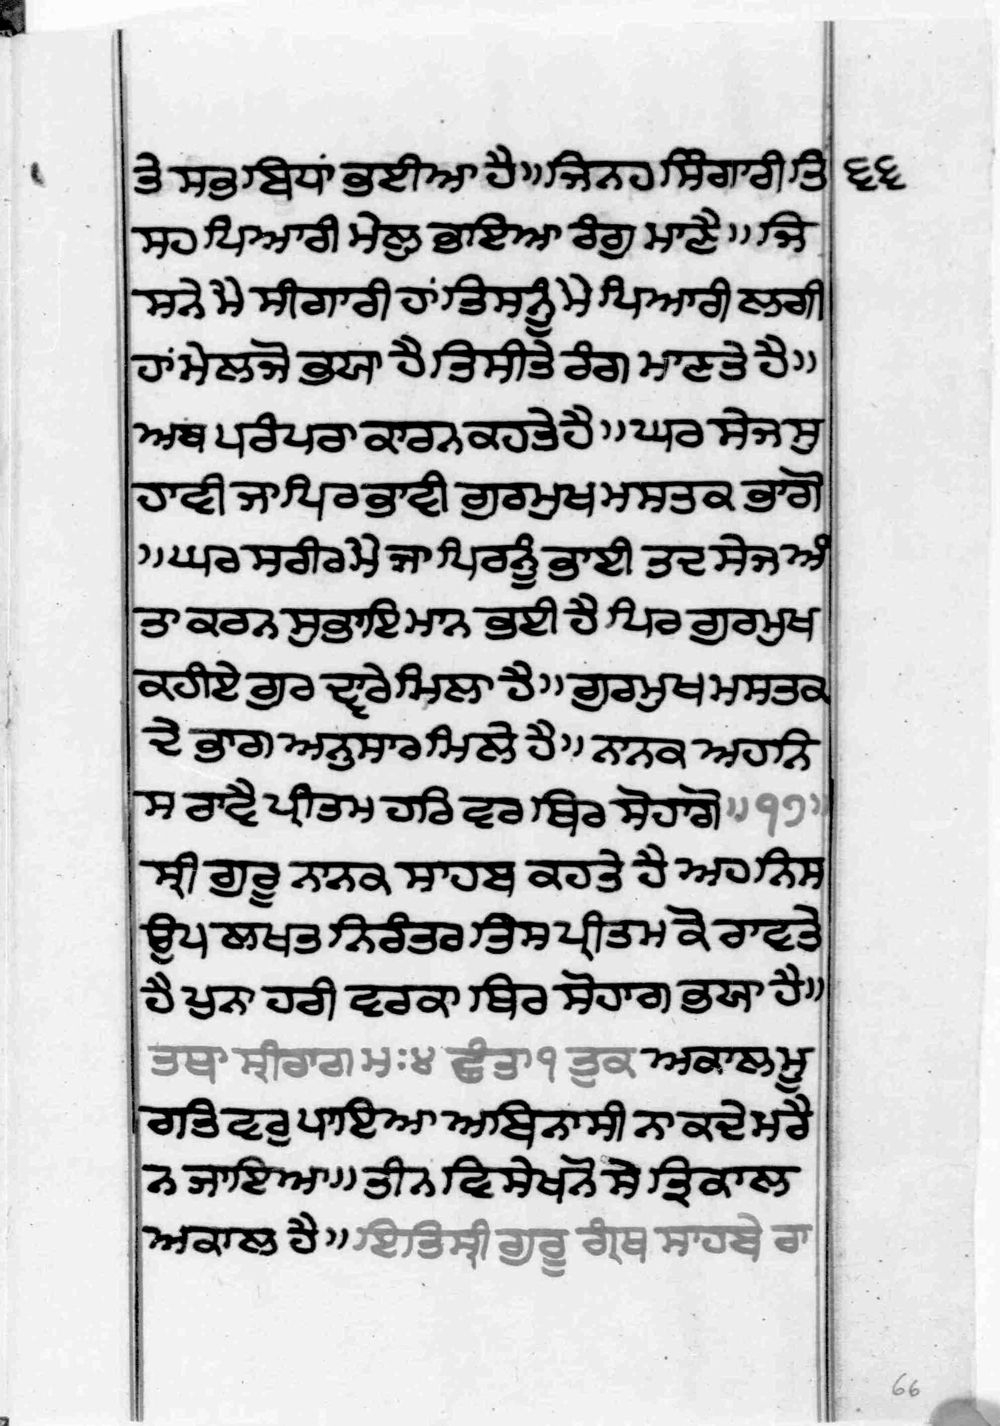 ਤੇ ਸਭ ਬਿਧਾਂ ਭਈਆ ਹੈ॥ਜਿਨਹ ਸਿੰਗਾਰੀ ਤਿ ੬੬
ਸਹ ਪਿਆਰੀ ਮੇਲੁ ਭਾਇਆ ਰੰਗੁ ਮਾਣੈ॥ਜਿ
ਸਨੇ ਮੈ ਸੀਗਾਰੀ ਹਾਂ ਤਿਸਨੂੰ ਮੈ ਪਿਆਰੀ ਲਗੀ
ਹਾਂ ਮੇਲ ਜੋ ਭਯਾ ਹੈ ਤਿਸੀਤੇ ਰੰਗ ਮਾਣਤੇ ਹੈ॥
ਅਥ ਪਰੰਪਰਾ ਕਾਰਨ ਕਹਤੇ ਹੈ॥ਘਰ ਸੇਜ ਸੁ
ਹਾਵੀ ਜਾ ਪਿਰ ਭਾਵੀ ਗੁਰਮੁਖ ਮਸਤਕ ਭਾਗੋ
॥ਘਰ ਸਰੀਰ ਮੈ ਜਾ ਪਿਰਨੂੰ ਭਾਈ ਤਦ ਸੇਜ ਅੰ
ਤਾ ਕਰਨ ਸੁਭਾਇਮਾਨ ਭਈ ਹੈ ਪਿਰ ਗੁਰਮੁਖ
ਕਹੀਏ ਗੁਰ ਦ੍ਵਾਰੇ ਮਿਲਾ ਹੈ॥ਗੁਰਮੁਖ ਮਸਤਕ
ਦੇ ਭਾਗ ਅਨੁਸਾਰ ਮਿਲੇ ਹੈ॥ਨਾਨਕ ਅਹਨਿ
ਸ ਰਾਵੈ ਪ੍ਰੀਤਮ ਹਰਿ ਵਰ ਥਿਰ ਸੋਹਾਗੋ॥੧੭॥
ਸ੍ਰੀ ਗੁਰੂ ਨਾਨਕ ਸਾਹਬ ਕਹਤੇ ਹੈ ਅਹਨਿਸ
ਉਪ ਲਖਤ ਨਿਰੰਤਰ ਤਿਸ ਪ੍ਰੀਤਮ ਕੋ ਰਾਵਤੇ
ਹੈ ਪੁਨਾ ਹਰੀ ਵਰਕਾ ਥਿਰ ਸੋਹਾਗ ਭਯਾ ਹੈ॥
ਤਥਾ ਸ੍ਰੀਰਾਗ ਮਃ੪ ਛੰਤਾ ੧ ਤੁਕ ਅਕਾਲ ਮੂ
ਰਤਿ ਵਰੁ ਪਾਇਆ ਅਬਿਨਾਸੀ ਨਾ ਕਦੇ ਮਰੈ
ਨ ਜਾਇਆ॥ਤੀਨ ਵਿਸੇਖਨੋ ਸੇ ਤ੍ਰਿਕਾਲ
ਅਕਾਲ ਹੈ॥ਇਤਿਸ੍ਰੀ ਗੁਰੂ ਗ੍ਰੰਥ ਸਾਹਬੇ ਰਾ
66